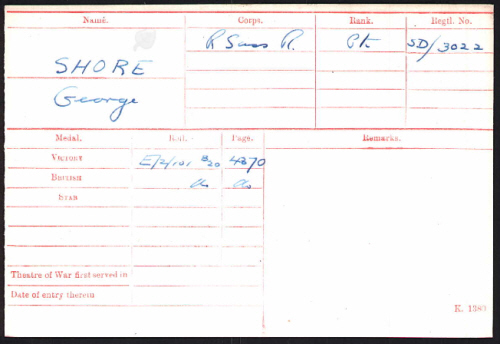 Name. Corps. Rank. Regtl. No.
R Suss R. Pte SD/3022
SHORE
George
Medal. Roll. Page. Remarks.
VICTORY E/2/101 B20 4870
BRITISH do do
STAR
Theatre of War first served in
Date of entry therein
K. 1380